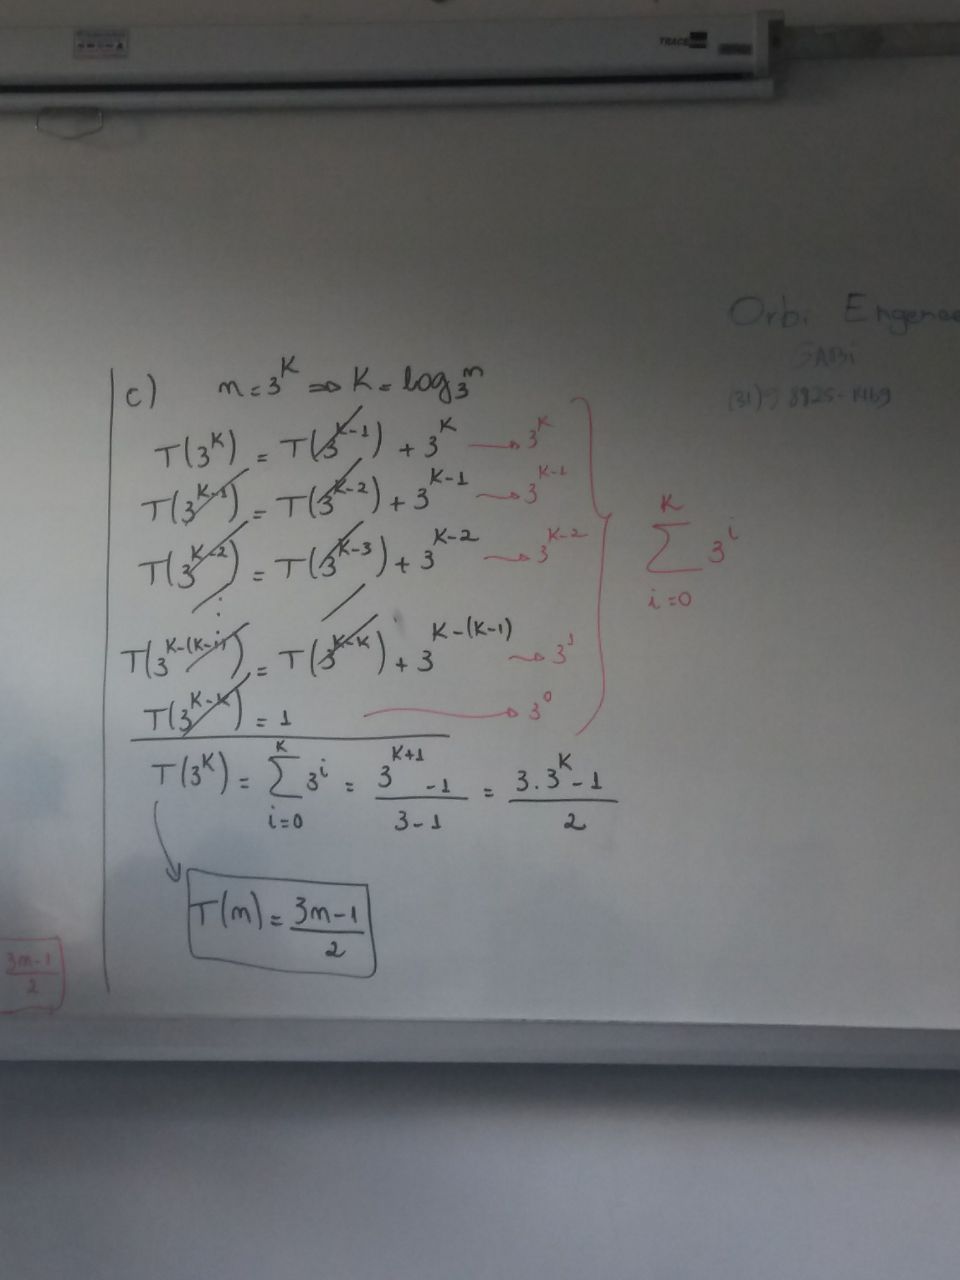 TRACE
Orbi Engenea
GABi
c) n = 3^K ⇒ K = log_3 n
T(3^K) = T(3^(K-1)) + 3^K → 3^K
T(3^(K-1)) = T(3^(K-2)) + 3^(K-1) → 3^(K-1)
T(3^(K-2)) = T(3^(K-3)) + 3^(K-2) → 3^(K-2)
⋮
T(3^(K-(K-1))) = T(3^(K-K)) + 3^(K-(K-1)) → 3^1
T(3^(K-K)) = 1 → 3^0
∑_{i=0}^{K} 3^i
T(3^K) = ∑_{i=0}^{K} 3^i = (3^(K+1) - 1)/(3 - 1) = (3.3^K - 1)/2
T(n) = (3n-1)/2
(3n-1)/2